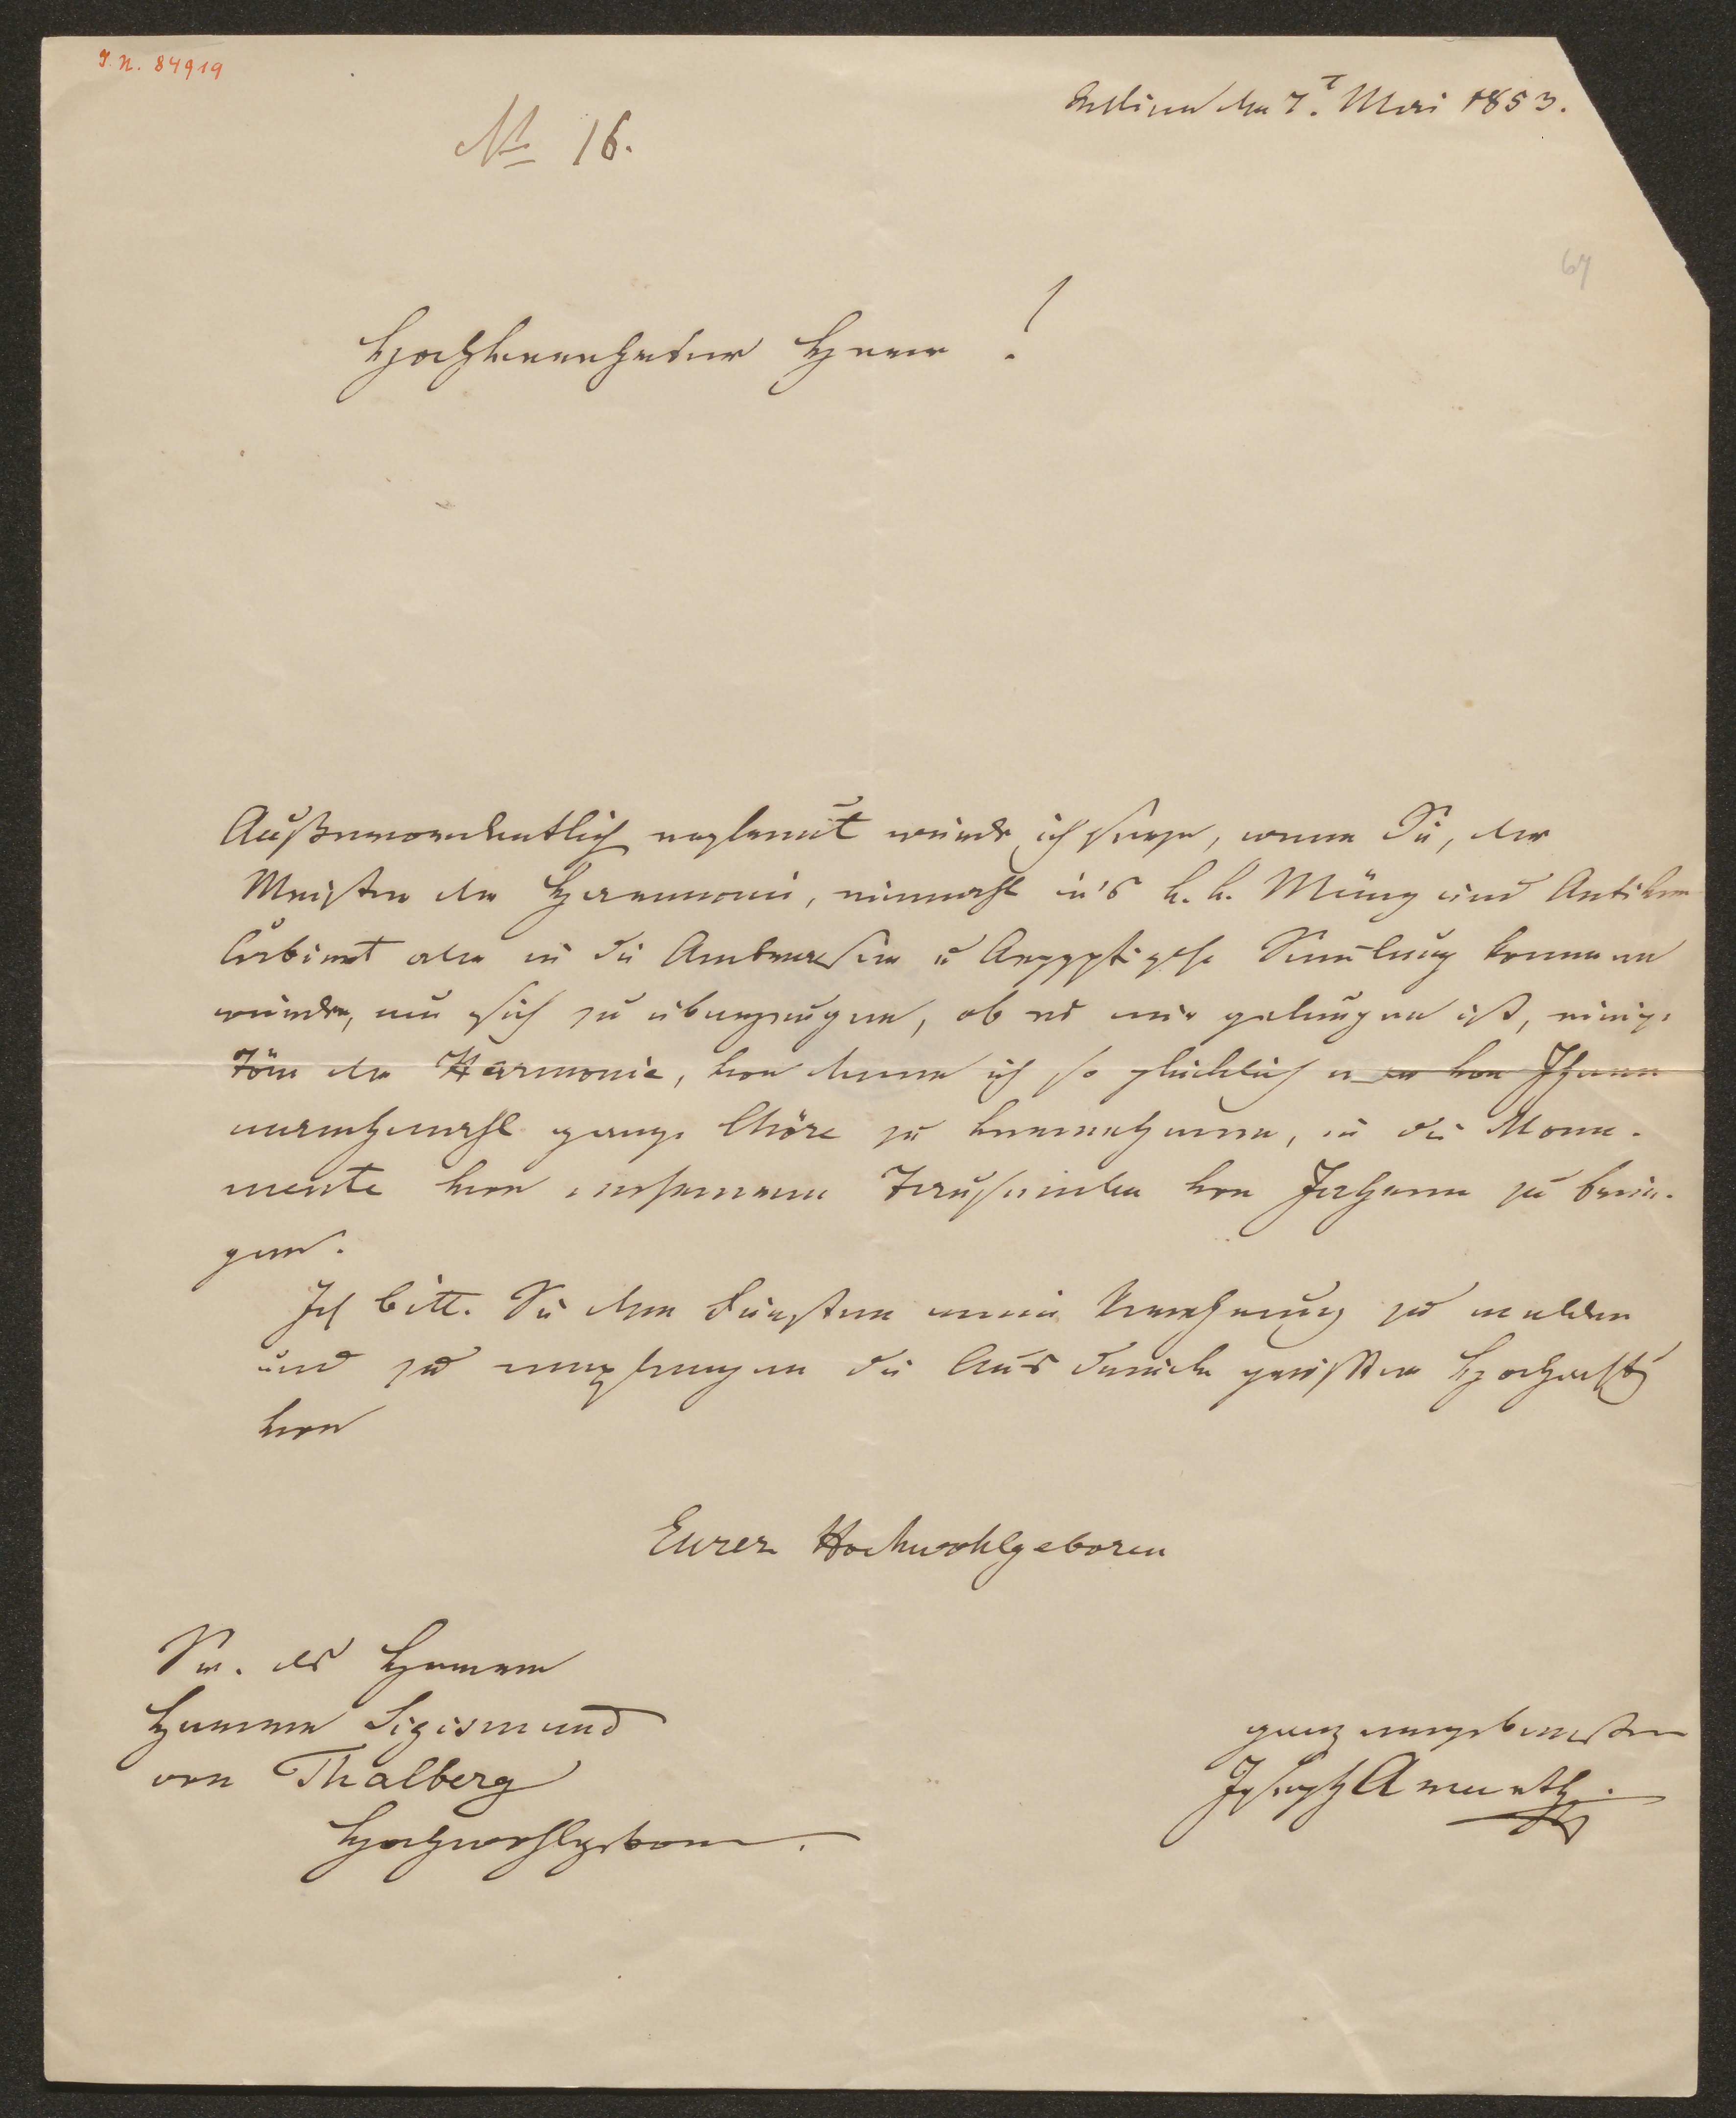 I. N. 84919
Wien den 7t. Mai 1853.
No 16.
64
Hochverehrter Herr!
Außerordentlich erfreut würde ich seyn, wenn Sie, der
Meister der Harmonie, einmahl in's k. k. Münz und Antiken
Cabinet oder in die Ambraser u Aegyptische Samlung kommen
würden, um sich zu überzeugen, ob es mir gelungen ist, einige
Töne der Harmonie, von denen ich so glücklich von Ihnen
mehrmahl ganze Chöre zu vernehmen, in die Monu-
mente von mehreren Tausenden von Jahren zu brin-
gen.
Ich bitte Sie dem Fürsten meine Verehrung zu melden
und zu empfangen die Ausdrücke größter Hochacht
von
Eurer Hochwohlgeboren
Sr. des Herren
Herren Sigismund
von Thalberg
Hochwohlgeboren.
ganz ergebenster
Joseph Arneth.